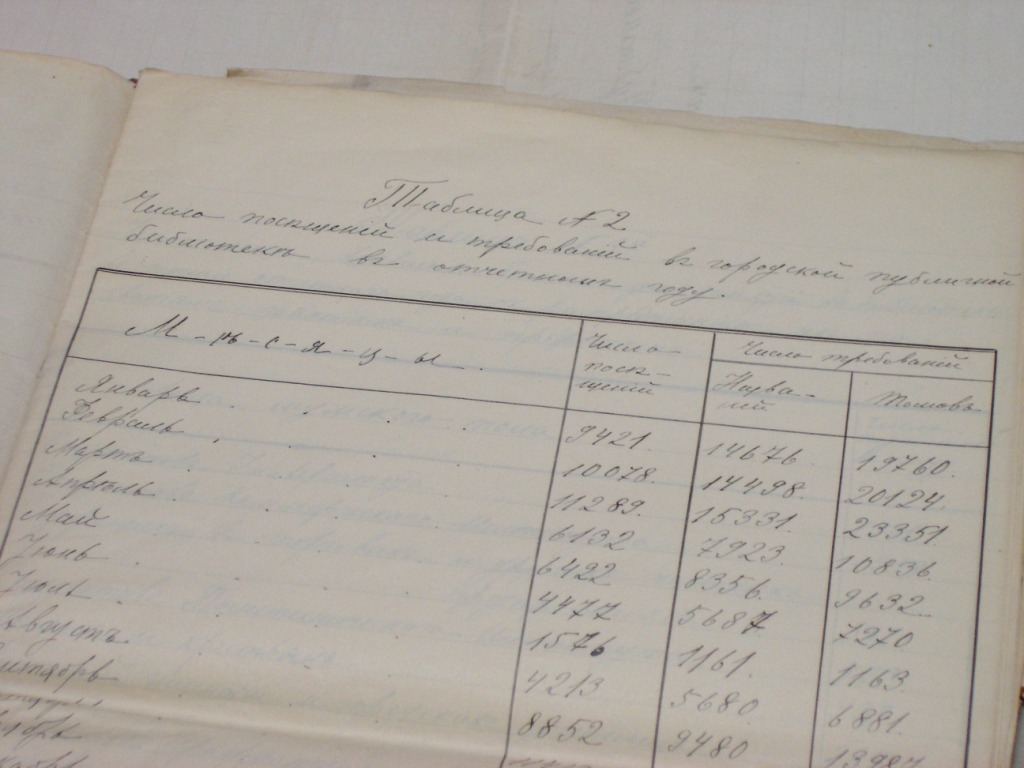 Таблица №2
Число посѣщенiй и требованiй въ городской публичной
библiотекѣ въ отчетномъ году.
М-ѣ-с-я-ц-ы. Число посѣ-щенiй Число требованiй
Назва-нiй Томовъ
Январь 9421. 14676. 19760.
Февраль 10078. 14498. 20124.
Мартъ 11289. 15331. 23351.
Апрѣль 6132 7923. 10836.
Май 6422 8356. 9632.
Iюнь 4477 5687 7270
Iюль 1576 1161. 1163.
Августъ 4213 5680. 6881.
8852 9480